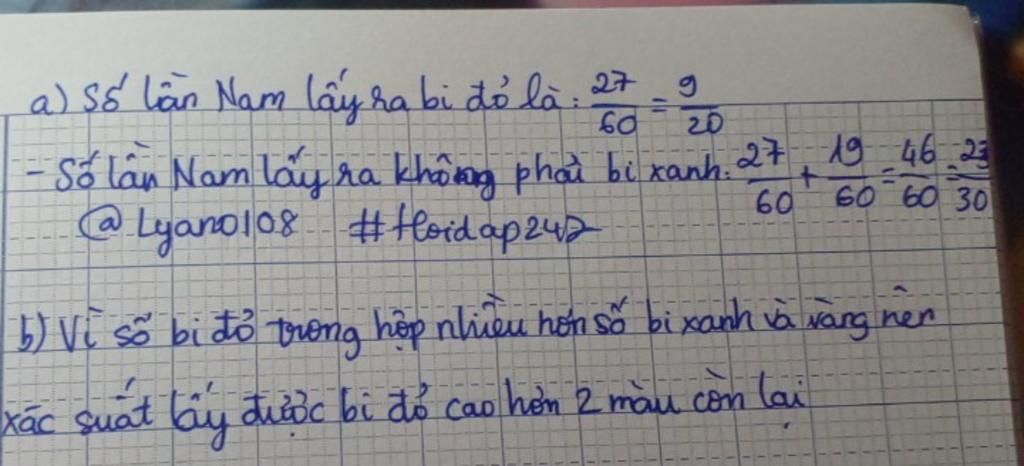 a) Số lần Nam lấy ra bi đỏ là: 27/60 = 9/20
- Số lần Nam lấy ra không phải bi xanh: 27/60 + 19/60 = 46/60 = 23/30
@Lyano108 #Hoidap242
b) Vì số bi đỏ trong hộp nhiều hơn số bi xanh và vàng nên
xác suất lấy được bi đỏ cao hơn 2 màu còn lại